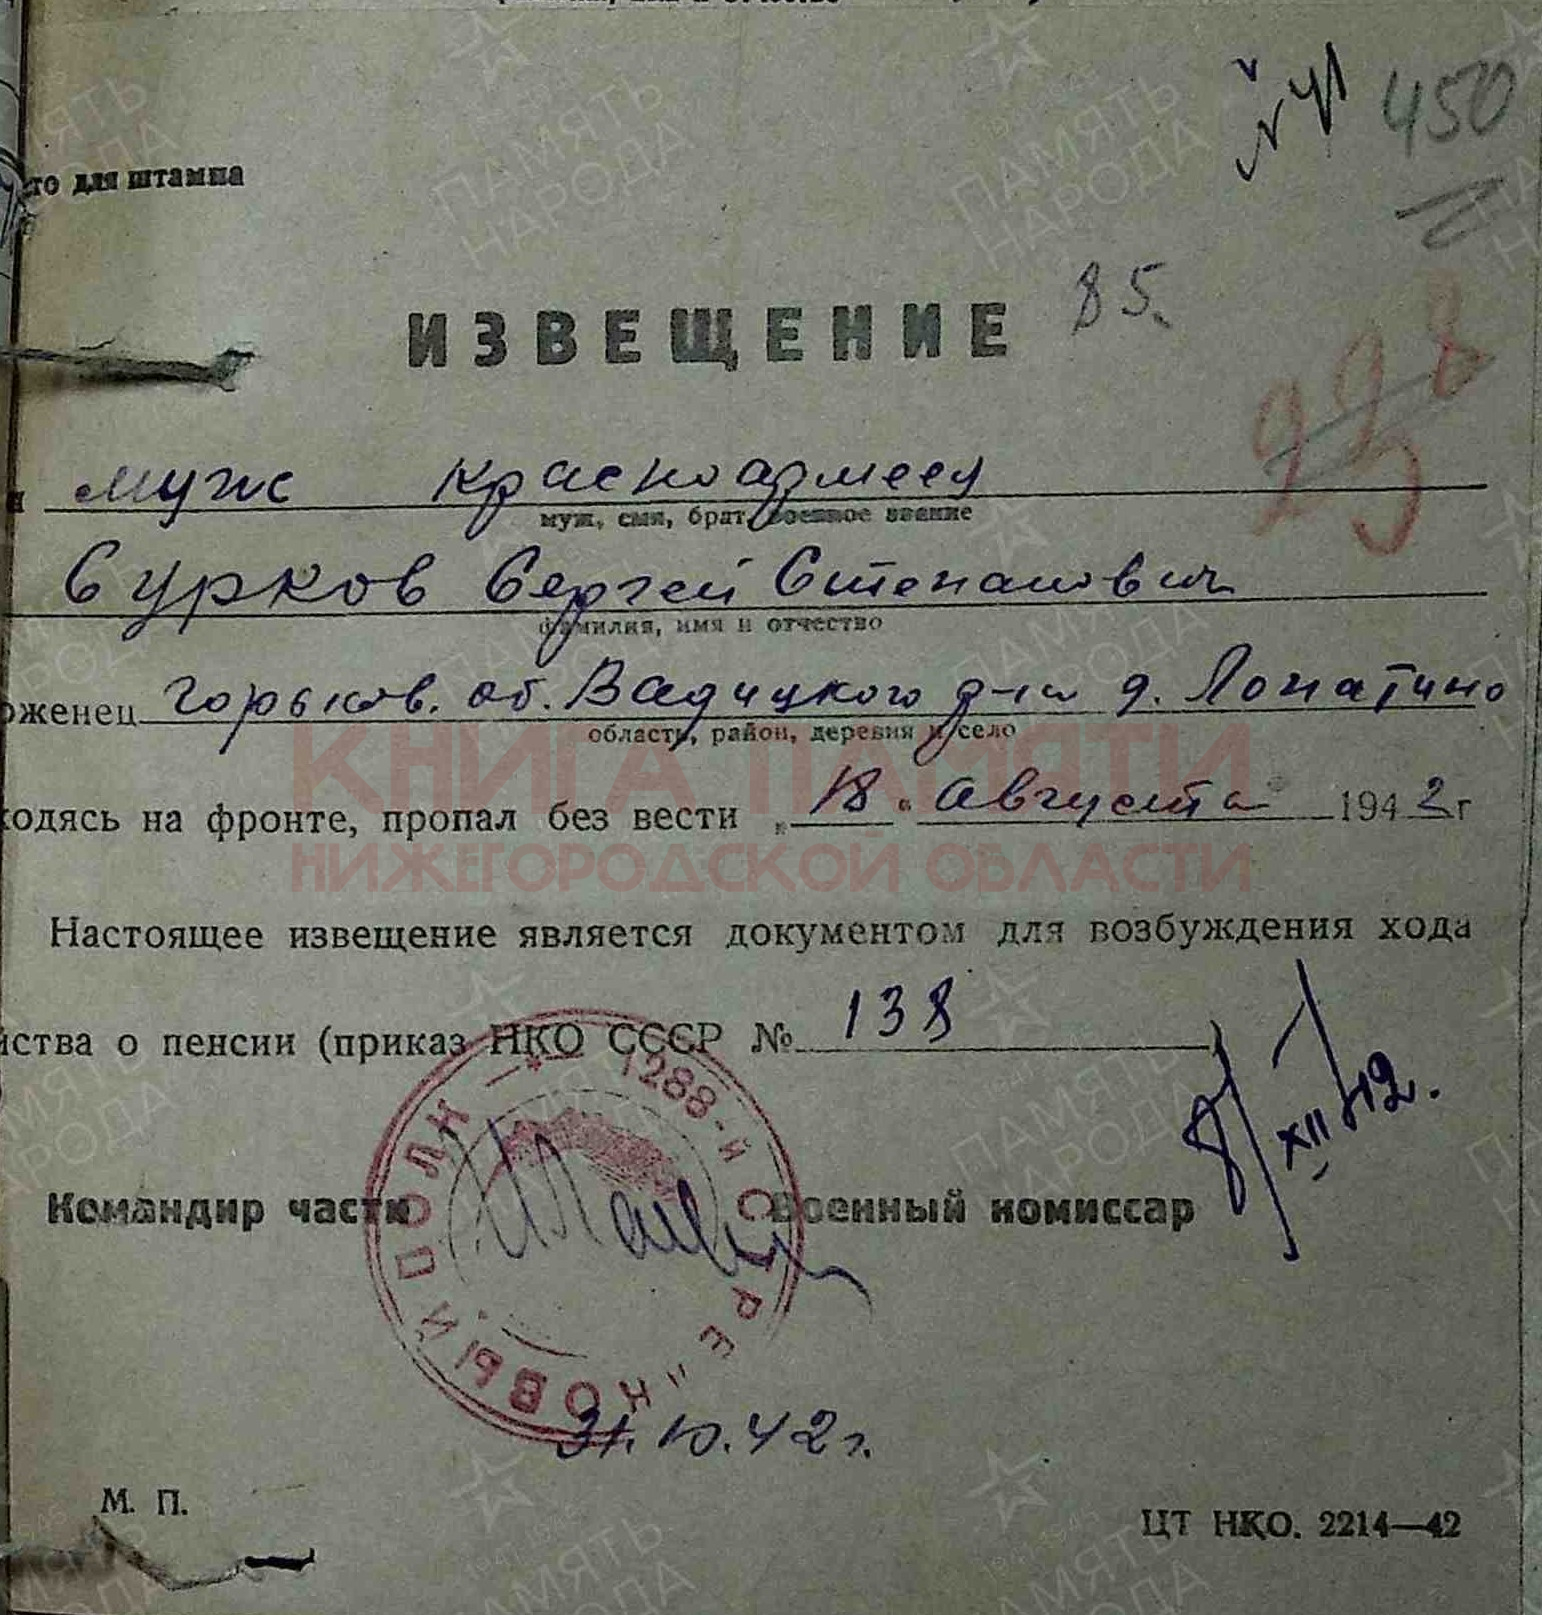 450
то для штампа
ИЗВЕЩЕНИЕ 85.
муж красноармеец
муж, сын, брат, военное звание
Сурков Сергей Степанович
фамилия, имя и отчество
оженец Горьков. об. Вадицкого р-на д. Лопатино
область, район, деревня и село
ходясь на фронте, пропал без вести „18“ Августа 1942 г
КНИГА ПАМЯТИ
НИЖЕГОРОДСКОЙ ОБЛАСТИ
Настоящее извещение является документом для возбуждения хода
йства о пенсии (приказ НКО СССР № 138)
1288-й СТРЕЛКОВЫЙ ПОЛК
XII 42.
Командир части Военный комиссар
31.10.42 г.
М. П.
ЦТ НКО. 2214—42
ПАМЯТЬ НАРОДА